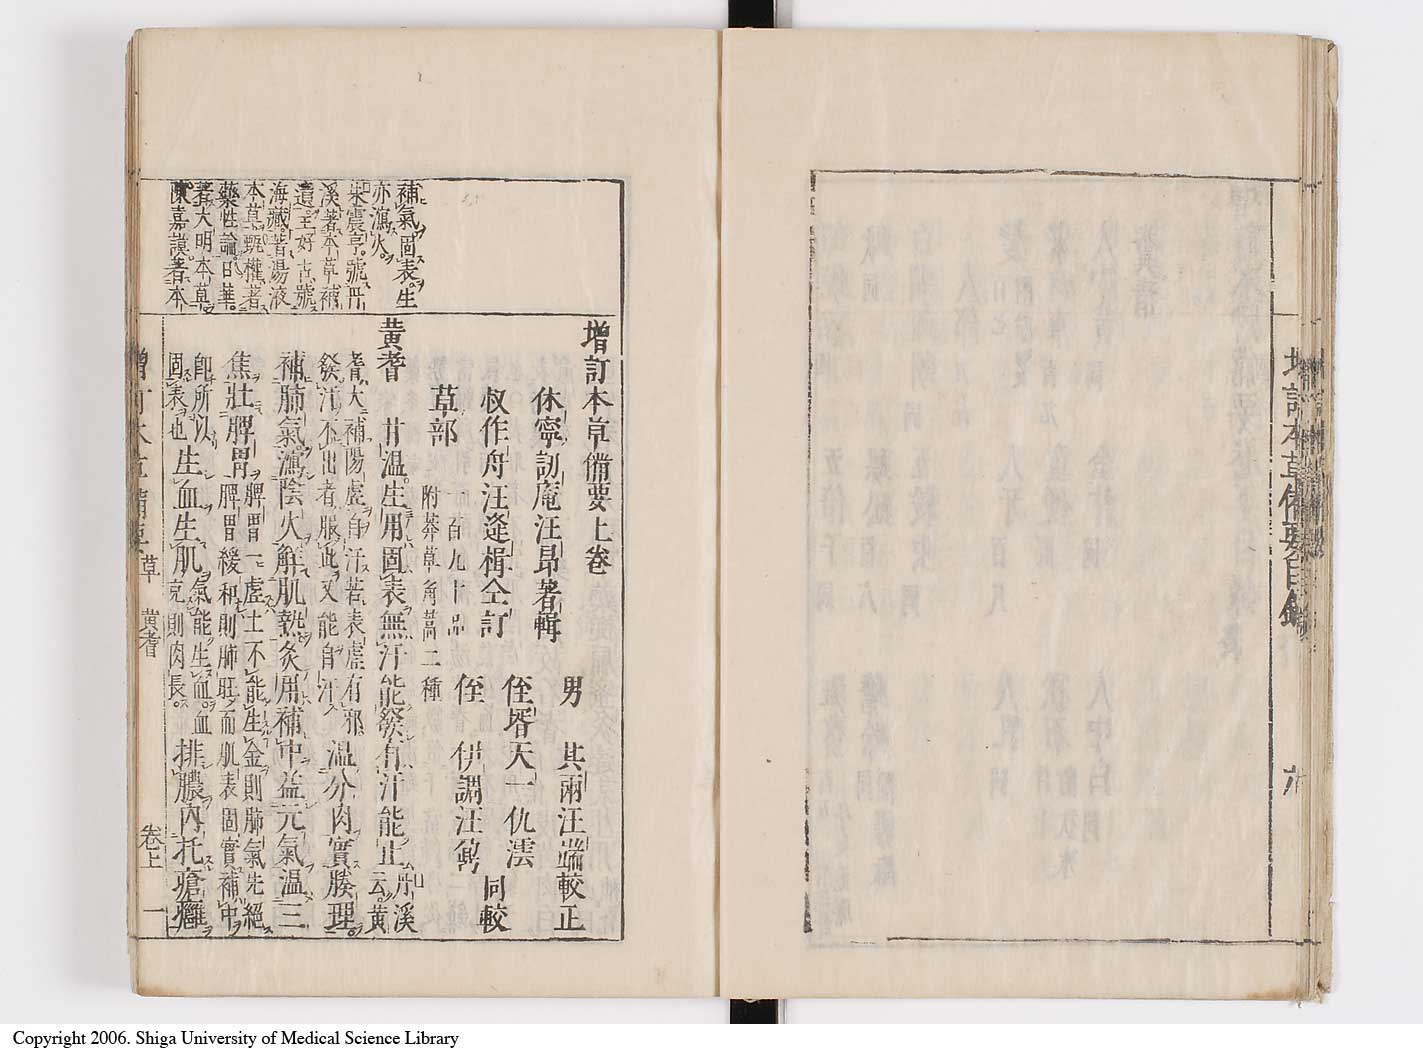 増訂本草備要目録
六
増訂本草備要上卷
休寧訒庵汪昂著輯
男 其兩汪端較正
叔作舟汪逢楫仝訂
侄壻天一仇澐
侄 伊調汪
同較
草部
一百九十品
附莽草角蒿二種
黄耆
甘溫生用固表無汗能發有汗能止
丹溪云黄
耆大補陽虛自汗若表虛有邪
發汗不出者服此又能自汗
溫分肉實腠理
補肺氣瀉陰火解肌熱炙用補中益元氣溫三
焦壯脾胃
脾胃一虛土不能生金則肺氣先絕
脾胃緩和則肺旺而肌表固實補中
即所以
固表也
生血生肌
氣能生血血
充則肉長
排膿內托瘡癰
補氣固表生
亦瀉火
朱震亨號丹
溪著本草補
遺王好古號
海藏著湯液
本草甄權著
藥性論日華
著大明本草
陳嘉謨著本
増訂本草備要
草
黄耆
卷上
一
Copyright 2006. Shiga University of Medical Science Library